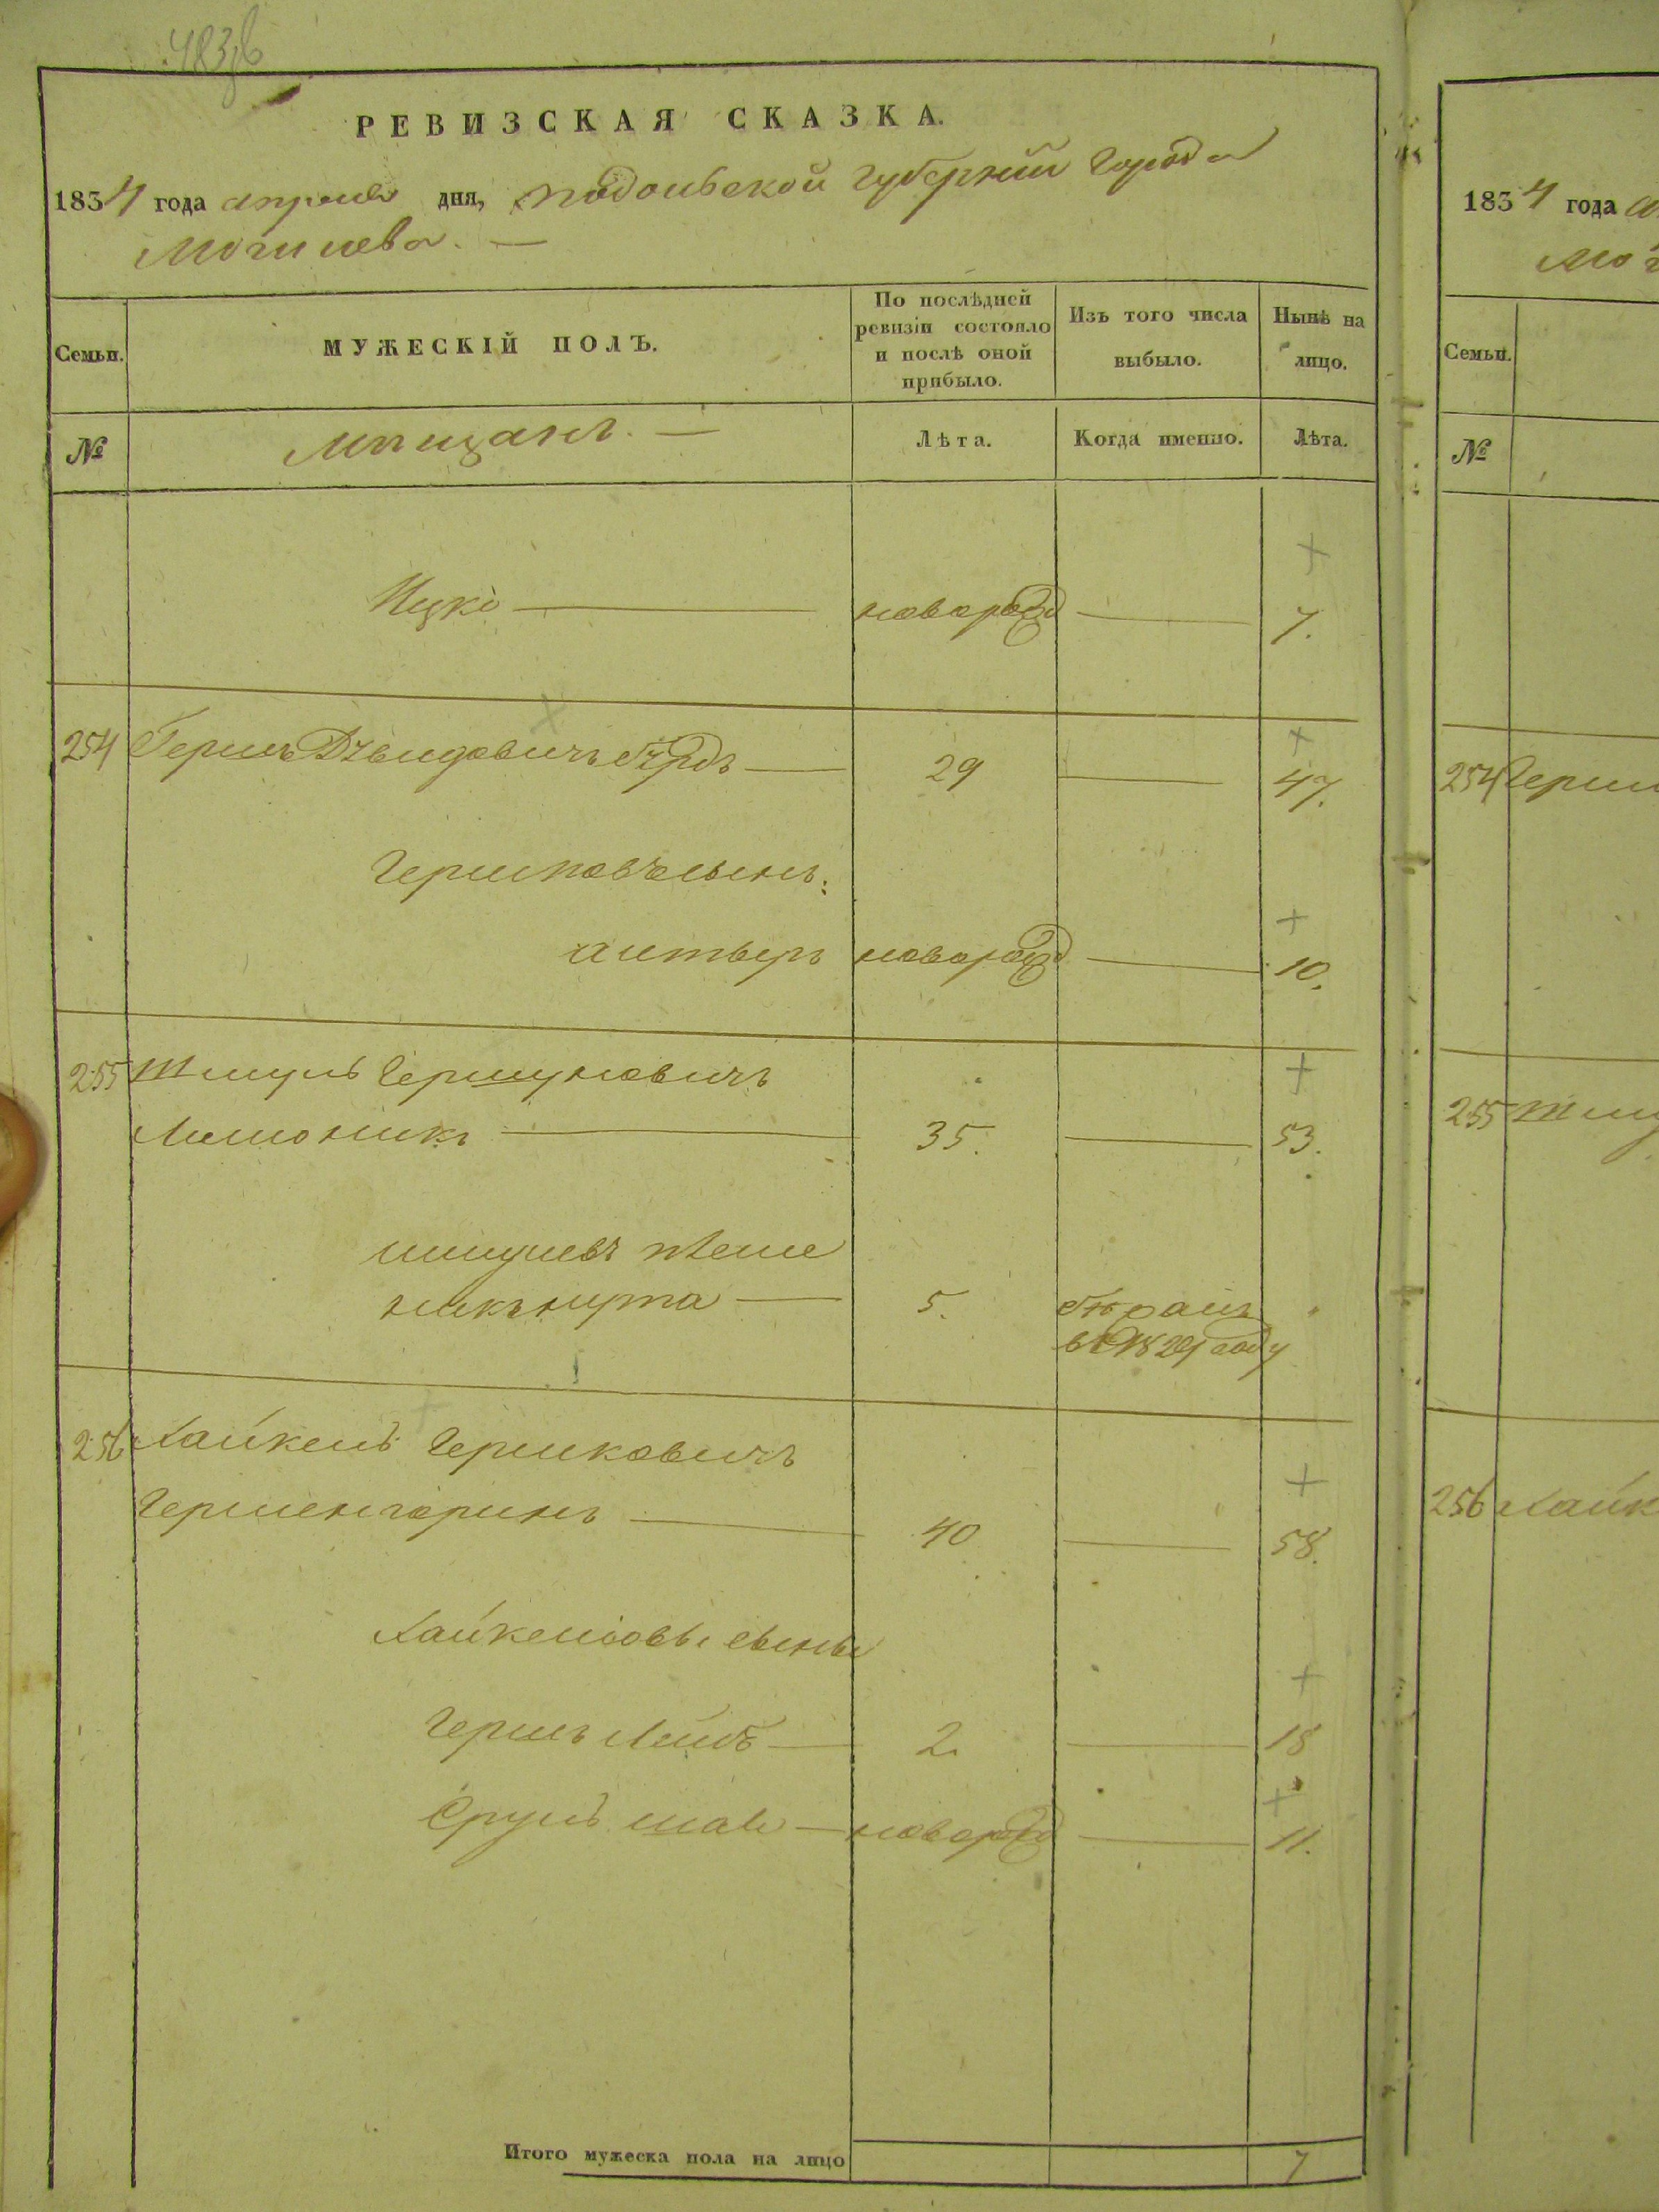 483
РЕВИЗСКАЯ СКАЗКА.
1834 года апреля дня, Подольской губернии города
Могилева. —
Семьи.
МУЖЕСКІЙ ПОЛЪ.
По послѣдней ревизіи состояло и послѣ оной прибыло.
Изъ того числа выбыло.
Нынѣ на лицо.
№
Мѣщанъ. —
Лѣта.
Когда именно.
Лѣта.
Ицко — новорожд — 7.
254 Гершъ — 29 — 47.
Гершковъ сынъ:
новорожд — 10.
255 Шмуль Гершуновичъ
35. — 53.
Шмулевъ племе
никъ Нута — 5.
в 1829 году
256 Хайкель Гершковичъ
40 — 58.
Хайкелiовы сыны
Гершъ Лейбъ — 2. — 18
Сруль — новорожд — 11.
Итого мужеска пола на лицо 7
1834 года
Семьи.
№
254 Герш
255 Шму
256 Хайк